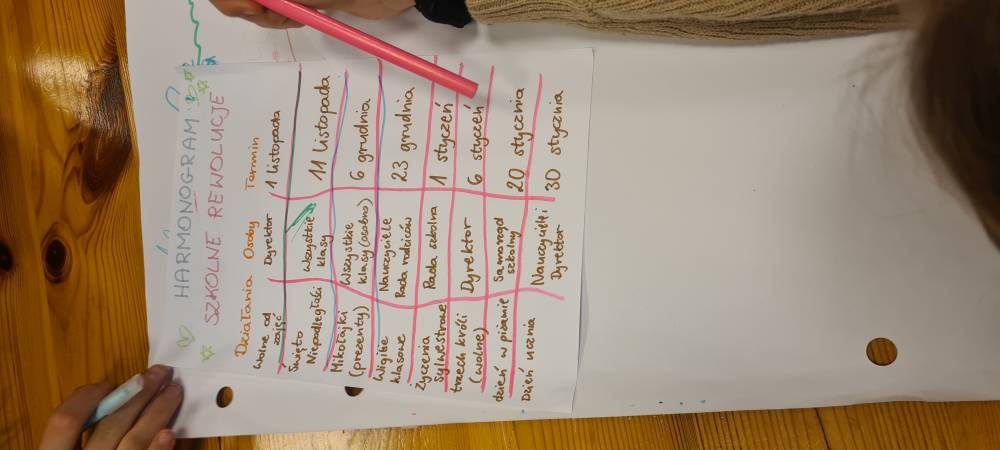 HARMONOGRAM
SZKOLNE REWOLUCJE
Działania Osoby Termin
Wolne od zajęć Dyrektor 1 listopada
Święto Niepodległości Wszystkie klasy 11 listopada
Mikołajki (prezenty) Wszystkie klasy (osobno) 6 grudnia
Wigilie klasowe Nauczyciele Rada rodziców 23 grudnia
Życzenia sylwestrowe Rada szkolna 1 styczeń
trzech króli (wolne) Dyrektor 6 styczeń
dzień w piżamie Samorząd szkolny 20 stycznia
Dzień ucznia Nauczyciele Dyrektor 30 stycznia